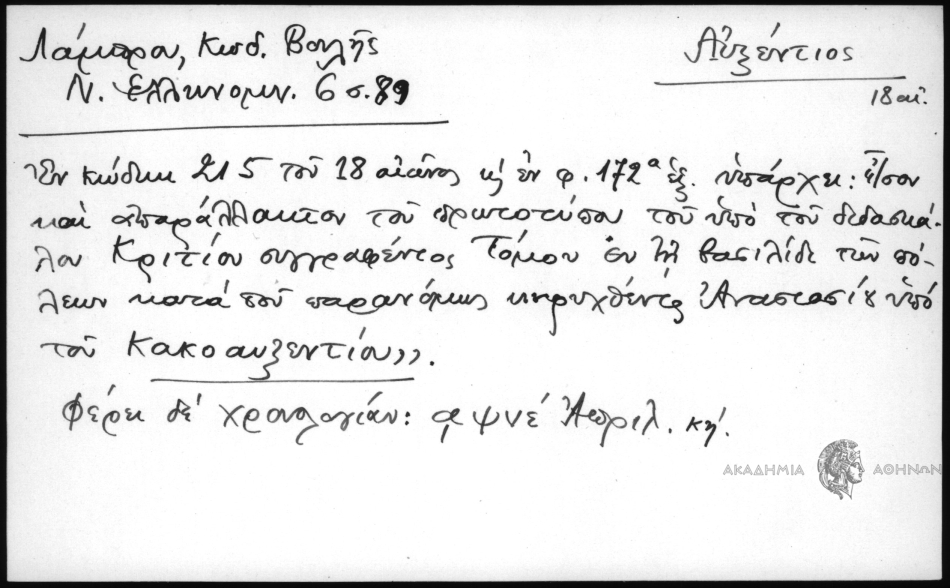 Λάμπρου, Κωδ. Βουλῆς
Ν. Ἑλληνομν. 6 σ. 89
Αὐξέντιος
18 αἰ.
Ἐν κώδικι 215 τοῦ 18 αἰῶνος κ ἐν φ. 172α ἑξ. ὑπάρχει: Ἴσον
καὶ ἀπαράλλακτον τοῦ πρωτοτύπου τοῦ ὑπὸ τοῦ διδασκά-
λου Κριτίου συγγραφέντος Τόμου ἐν τῇ βασιλίδι τῶν πό-
λεων κατὰ τοῦ παρανόμως κηρυχθέντος Ἀναστασίου ὑπὸ
τοῦ Κακοαυξεντίου».
Φέρει δὲ χρονολογίαν: αψνέ Ἀπριλ. κη'.
ΑΚΑΔΗΜΙΑ ΑΘΗΝΩΝ